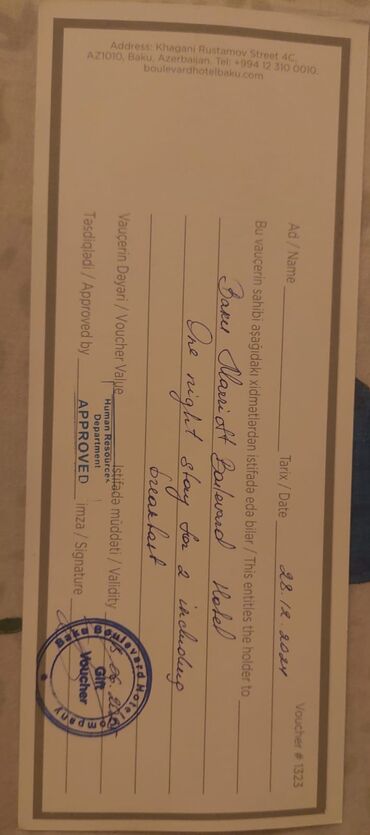 Voucher # 1323
Ad / Name Tarix / Date 28.12.2024
Bu vauçerin sahibi aşağıdakı xidmətlərdən istifadə edə bilər / This entitles the holder to
Baku Marriott Boulevard Hotel
One night stay for 2 including
breakfast
Vauçerin Dəyəri / Voucher Value İstifadə müddəti / Validity
Təsdiqlədi / Approved by İmza / Signature
Human Resources
Department
APPROVED
Baku Boulevard Hotel Company
Gift
Voucher
Address: Khagani Rustamov Street 4C,
AZ1010, Baku, Azerbaijan. Tel: +994 12 310 0010.
boulevardhotelbaku.com